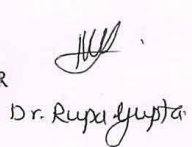 R
Dr. Rupa Gupta